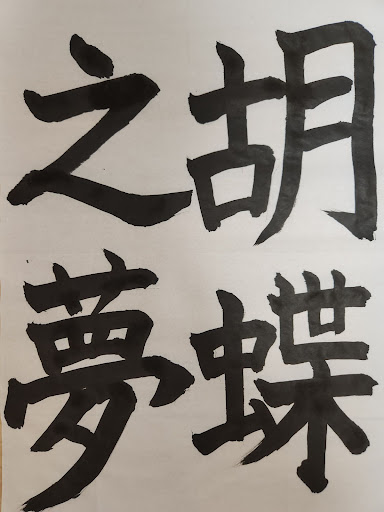 胡蝶
之夢